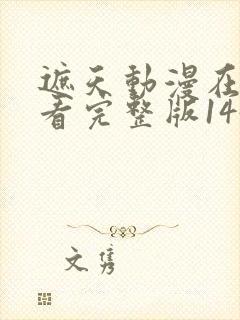 遮天動漫在
看完整版14
文隽